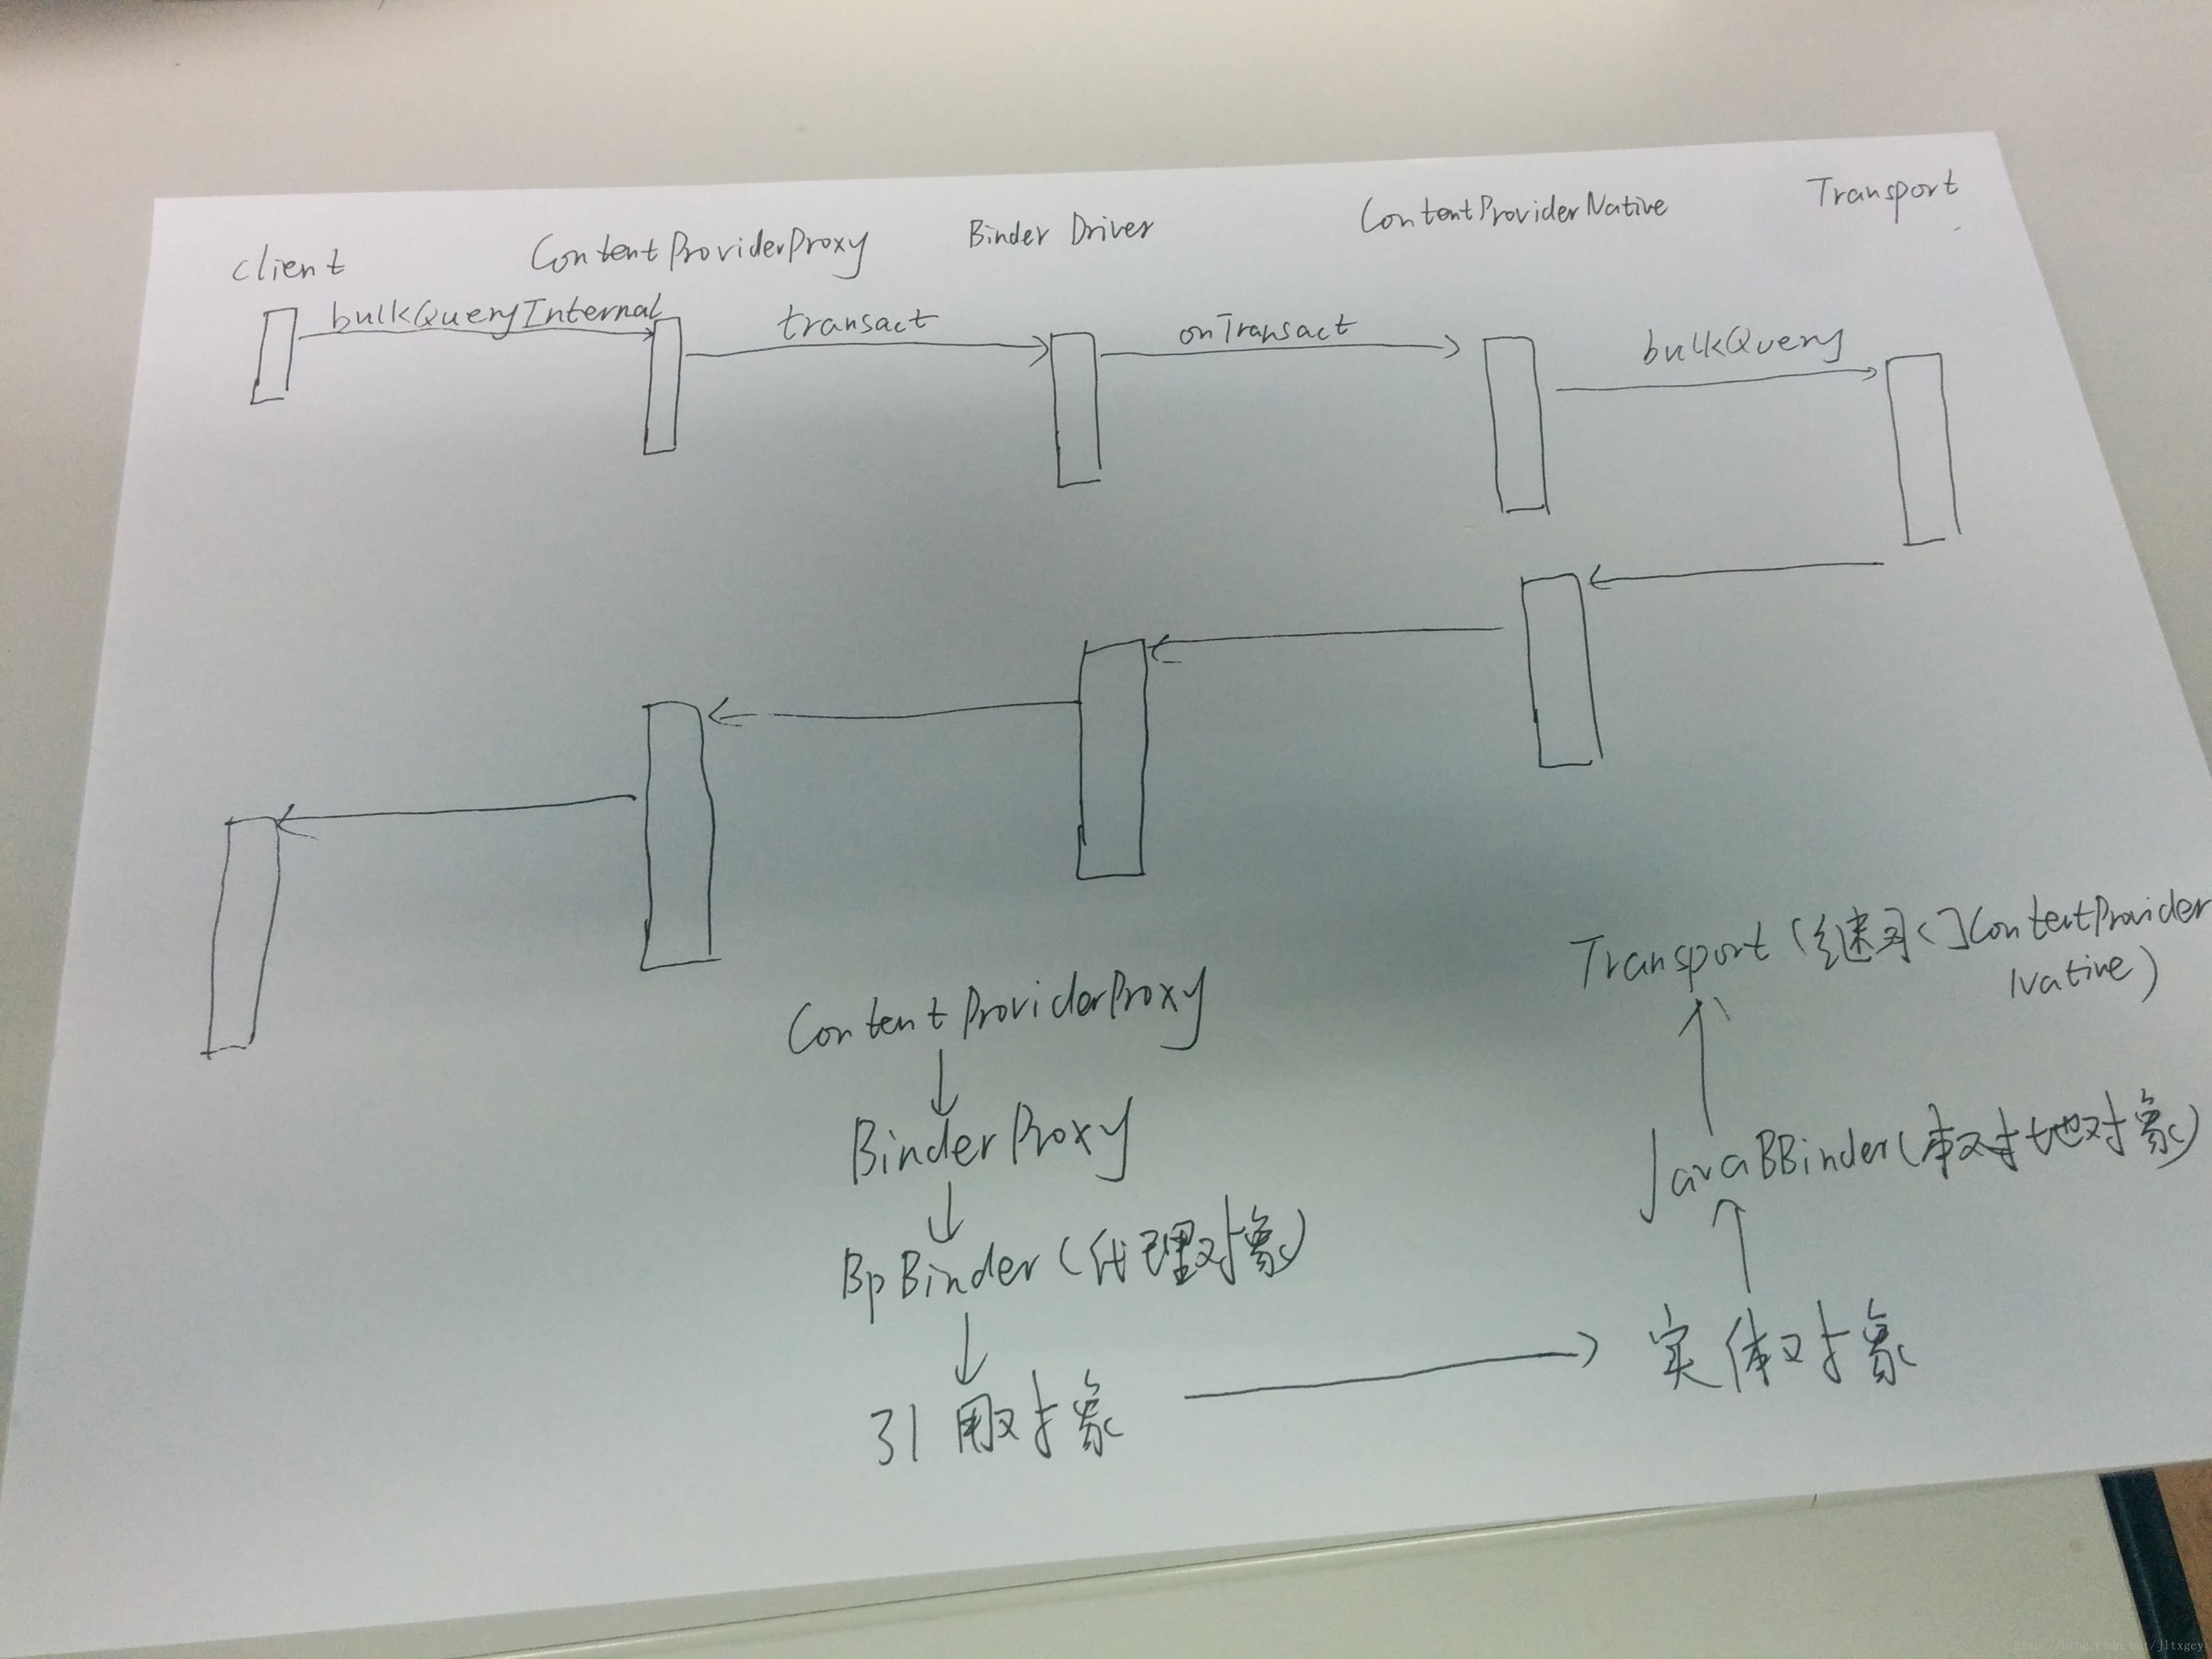 client
ContentProviderProxy
Binder Driver
ContentProviderNative
Transport
bulkQueryInternal
transact
onTransact
bulkQuery
ContentProviderProxy
BinderProxy
BpBinder(代理对象)
引用对象
实体对象
JavaBBinder(本地对象)
Transport(继承ContentProvider
Native)
http://blog.csdn.net/jltxgcy